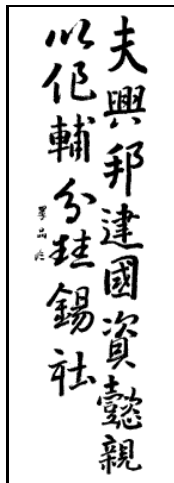 夫興邦建國資懿親
以作輔分珪錫社